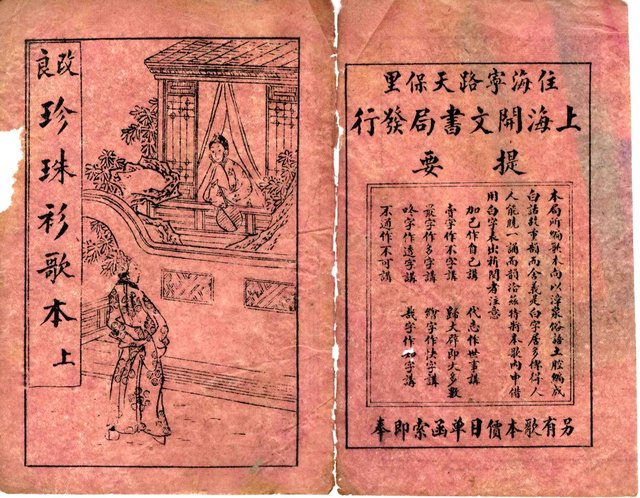 改良
珍珠衫歌本 上
住海寧路天保里
上海開文書局發行
提要
本局所編歌本向以漳泉俗語土腔編成
白話故事韻而合義是白字居多俾得人
人能曉一誦而韻洽茲特將本歌內中借
用白字表出祈閱者注意
加己作自己講 代志作世事講
字作不字講 歸大群即大多數
最字作多字講 字作快字講
字作這字講 字作字講
不通作不可講
另有歌本價目單函索即奉